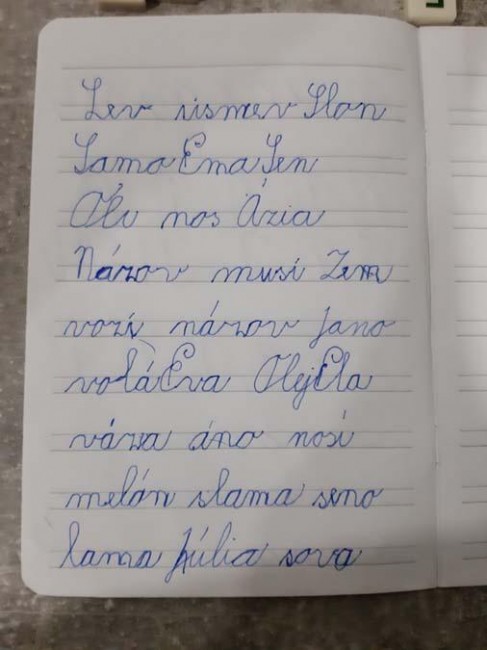 Lev sismev Slon
Samo Ema Sen
Oli nos Ázia
Názov musí Zem
vozí názov Jano
volá Eva Olej Ela
váza áno nosí
melón slama seno
lama Júlia sova